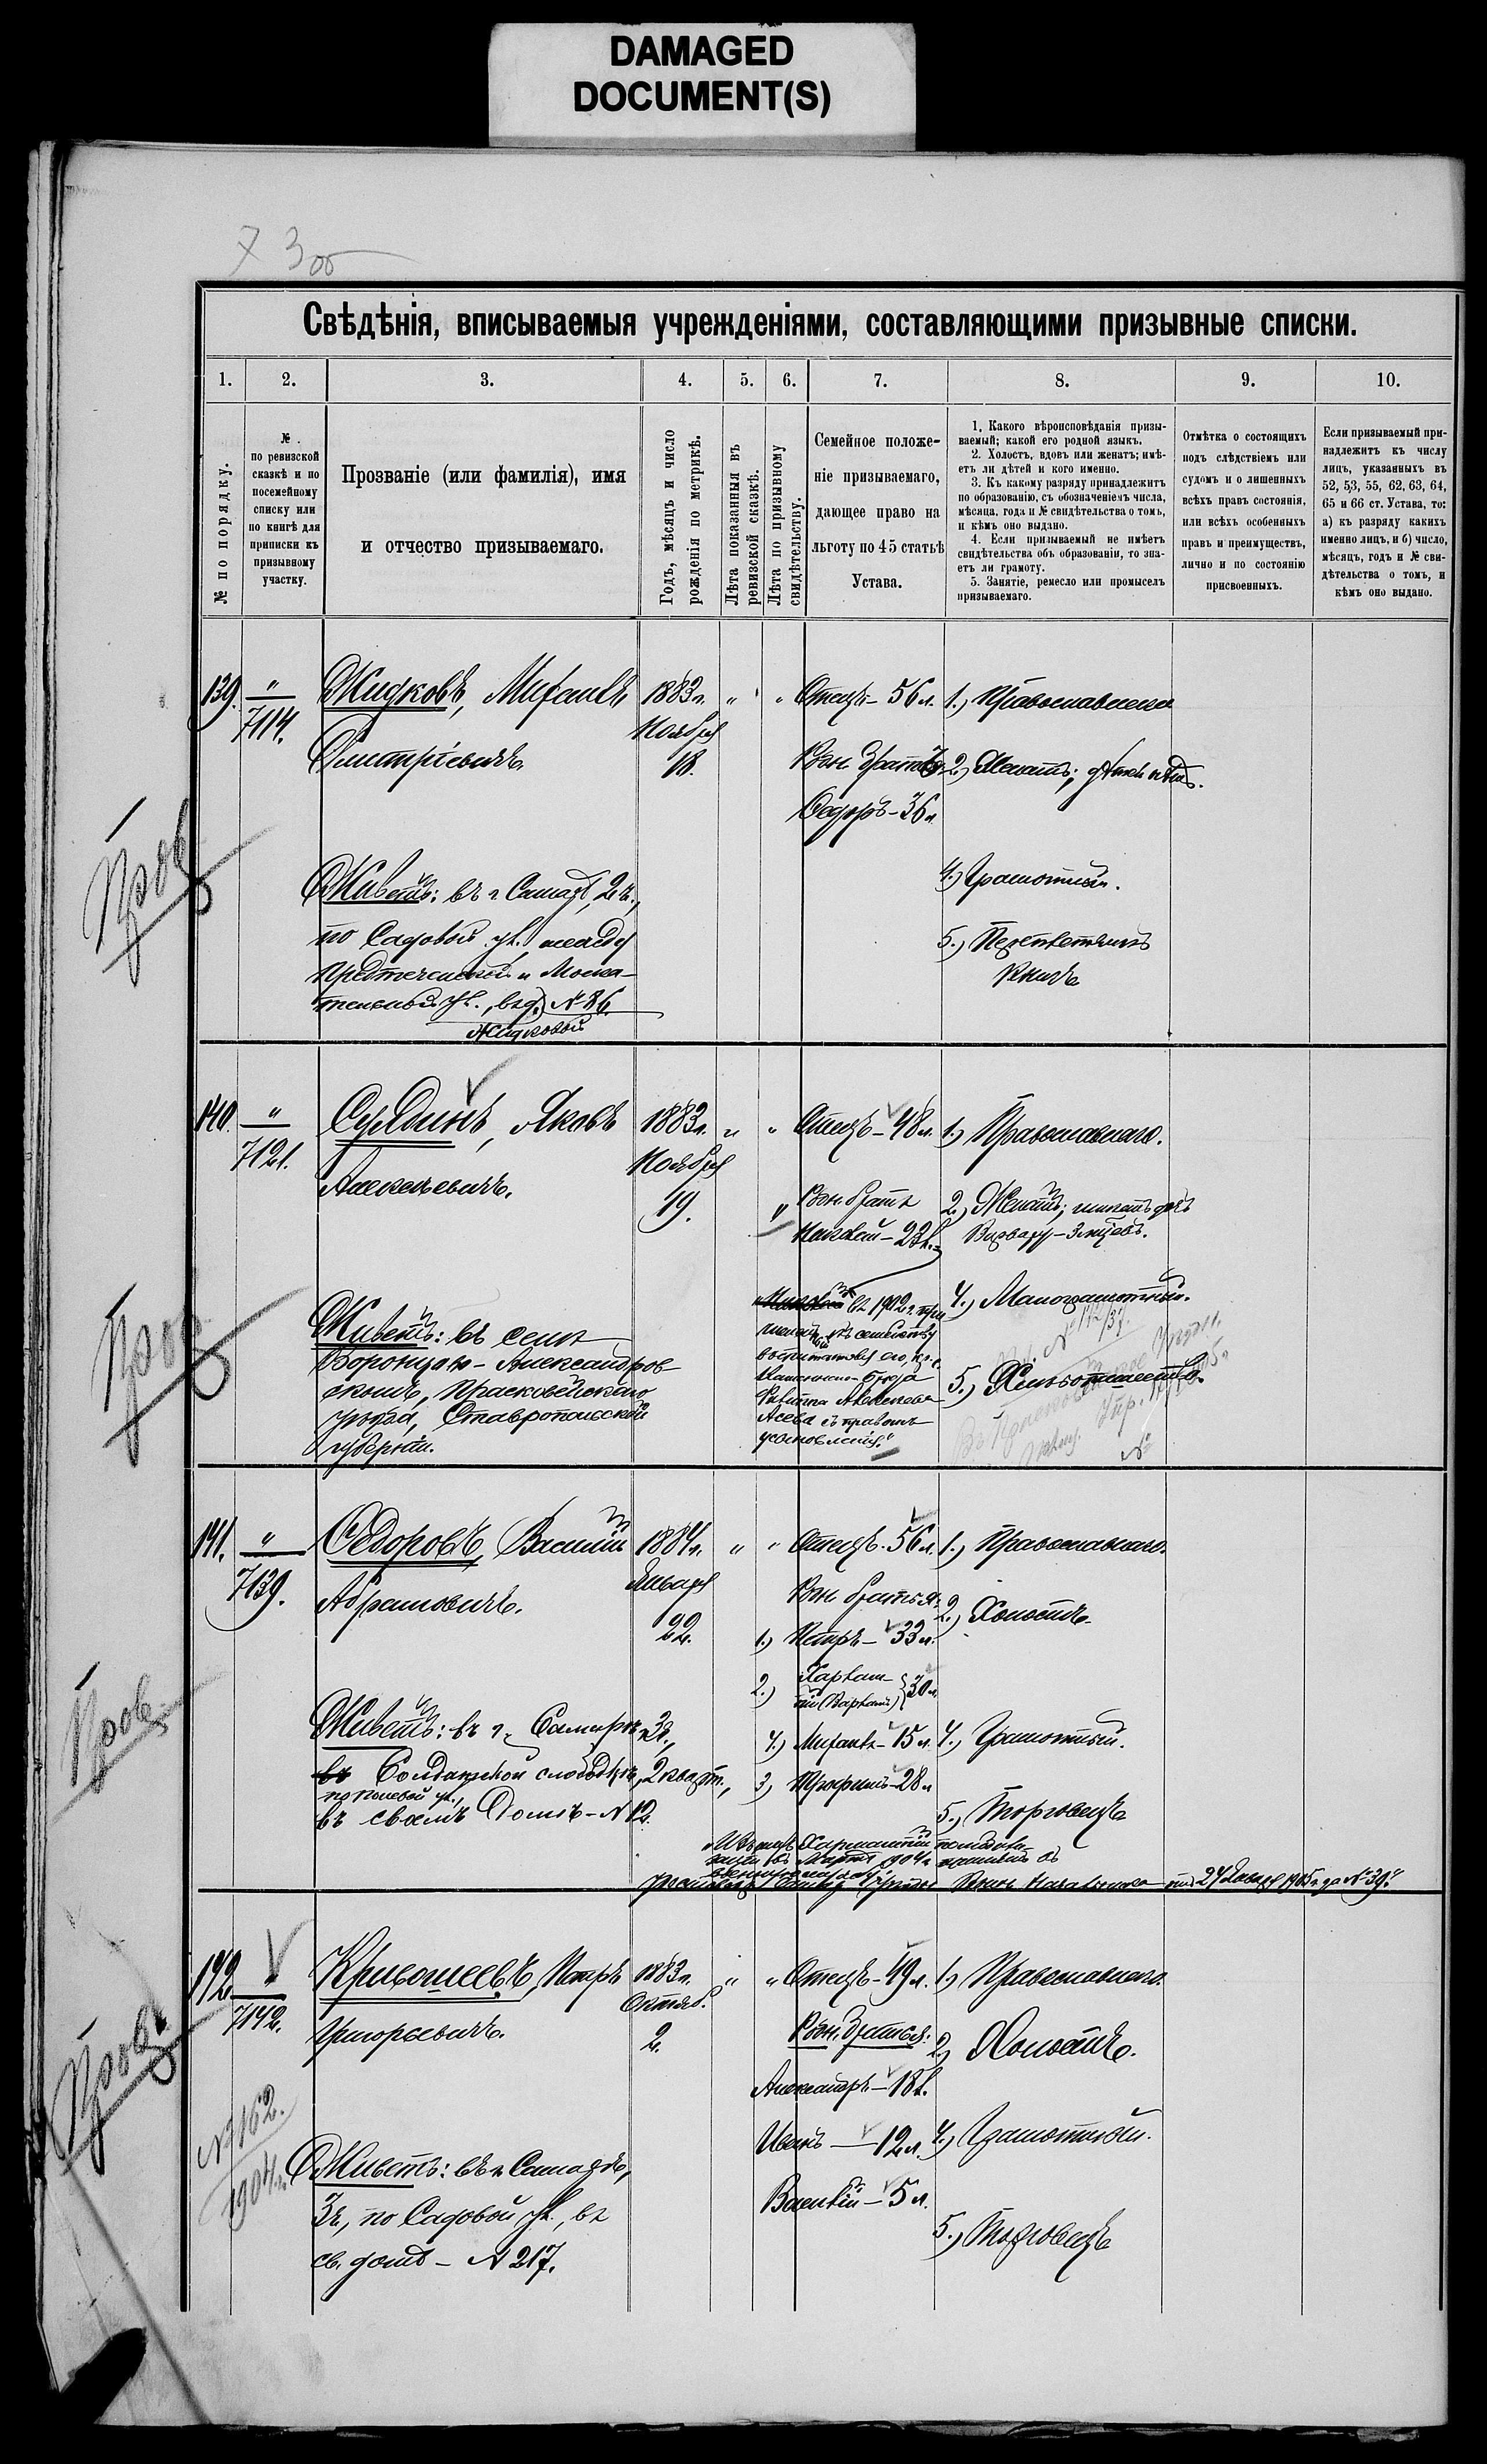 DAMAGED
DOCUMENT(S)
Свѣдѣнія, вписываемыя учрежденіями, составляющими призывные списки.
1. 2. 3. 4. 5. 6. 7. 8. 9. 10.
№ по порядку.
№
по ревизской
сказкѣ и по
посемейному
списку или
по книгѣ для
приписки къ
призывному
участку.
Прозваніе (или фамилія), имя
и отчество призываемаго.
Годъ, мѣсяцъ и число
рожденія по метрикѣ.
Лѣта показанныя въ
ревизской сказкѣ.
Лѣта по призывному
свидѣтельству.
Семейное положе-
ніе призываемаго,
дающее право на
льготу по 45 статьѣ
Устава.
1. Какого вѣроисповѣданія призы-
ваемый; какой его родной языкъ.
2. Холостъ, вдовъ или женатъ; имѣ-
етъ ли дѣтей и кого именно.
3. Къ какому разряду принадлежитъ
по образованію, съ обозначеніемъ числа,
мѣсяца, года и № свидѣтельства о томъ,
и кѣмъ оно выдано.
4. Если призываемый не имѣетъ
свидѣтельства объ образованіи, то зна-
етъ ли грамоту.
5. Занятіе, ремесло или промыселъ
призываемаго.
Отмѣтка о состоящихъ
подъ слѣдствіемъ или
судомъ и о лишенныхъ
всѣхъ правъ состоянія,
или всѣхъ особенныхъ
правъ и преимуществъ,
лично и по состоянію
присвоенныхъ.
Если призываемый при-
надлежитъ къ числу
лицъ, указанныхъ въ
52, 53, 55, 62, 63, 64,
65 и 66 ст. Устава, то:
а) къ разряду какихъ
именно лицъ, и б) число,
мѣсяцъ, годъ и № сви-
дѣтельства о томъ, и
кѣмъ оно выдано.
139. " 7114.
Жидковъ, Михаилъ
Дмитріевичъ.
1883 г.
Ноября
18.
" "
Отецъ - 56 л.
Род. братъ
Федоръ - 36 л.
1.) Православнаго
2.) Женатъ; дѣтей нѣтъ.
4.) Грамотный.
5.) Переплетчикъ
книгъ
Живетъ: въ г. Самарѣ, 2 ч.,
по Садовой ул. между
Предтеченской и Москательной
ул., въ д. № 86
Жидковой
Пров
140. " 7121.
Сурдинъ, Яковъ
Алексѣевичъ.
1883 г.
Ноября
19.
" "
Отецъ - 48 л.
Род. братъ
Николай - 23 л.
1.) Православнаго.
2.) Женатъ; имѣетъ дочь
Варвару - 3 мѣсяц.
4.) Малограмотный.
5.) Хлѣбопашество.
Живетъ: въ селѣ
Воронцово-Александров-
скомъ, Прасковейскаго
уѣзда, Ставропольской
губерніи.
въ 1902 г.
усыновленія."
Пров
141. " 7139.
Федоровъ, Василій
Абрамовичъ.
1884 г.
Января
22.
" "
Отецъ - 56 л.
Род. братья:
1.) Петръ - 33 л.
2.) 30 л.
4.) Михаилъ - 15 л.
3.) Трофимъ - 28 л.
1.) Православнаго.
2.) Холостъ.
4.) Грамотный.
5.) Торговецъ
Живетъ: въ г. Самарѣ 3 ч.,
въ Солдатской слободкѣ, 2 кварт.,
по Полевой ул.,
въ своемъ домѣ - № 12.
24 Января 1905 г. за № 39."
Пров
142. " 7142.
Кривошеевъ, Петръ
Григорьевичъ.
1883 г.
Октяб.
2.
" "
Отецъ - 49 л.
Род. братья:
Александръ - 18 л.
Иванъ - 12 л.
Василій - 5 л.
1.) Православнаго.
2.) Холостъ.
4.) Грамотный.
5.) Торговецъ
Живетъ: въ г. Самарѣ,
3 ч., по Садовой ул., въ
св. домѣ - № 217.
Пров
№ 162.
1904 г.